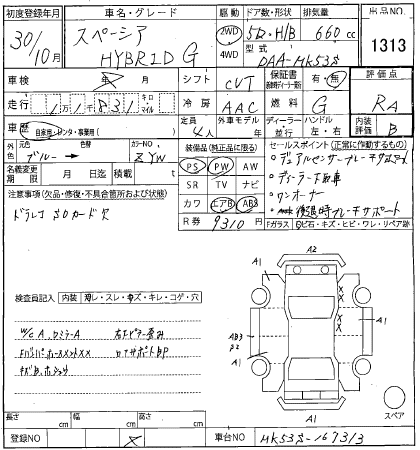 初度登録年月 車名・グレード 駆動 ドア数・形状 排気量 出品NO
30/10月 スペーシア HYBRID G 2WD 4WD 5D・H/B 660cc 1313
型式 DAA-MK53S
車検 年 月 シフト CVT 保証書 有・無 評価点
走行 11,831 キロ・マイル 冷房 AAC 燃料 G RA
車歴 自家用・レンタ・事業用( ) 定員 4人 外車モデル 年 ディーラー・並行 ハンドル 左・右 内装評価 B
外色 元色 ブルー → 色 カラーNO ZYW 装備品(純正品に限る) セールスポイント(正常に作動するもの)
名義変更期限 月 日迄 積載 t
PS PW AW
SR TV ナビ
カワ エアB ABS
R券 9310円
・デュアルセンサーブレーキサポート
・ディーラー下取車
・ワンオーナー
・後退時ブレーキサポート
注意事項(欠品・修復・不具合箇所および状態)
ドラレコ SDカード欠
Fガラス 飛石・キズ・ヒビ・ワレ・リペア跡
検査員記入 内装 汚レ・スレ・キズ・キレ・コゲ・穴
W/C A
A2
A1 A1
X
X
X
X
AB3
A1
A1
A1
スペア
長さ cm 幅 cm 高さ cm
登録NO 車台NO MK53S-167313